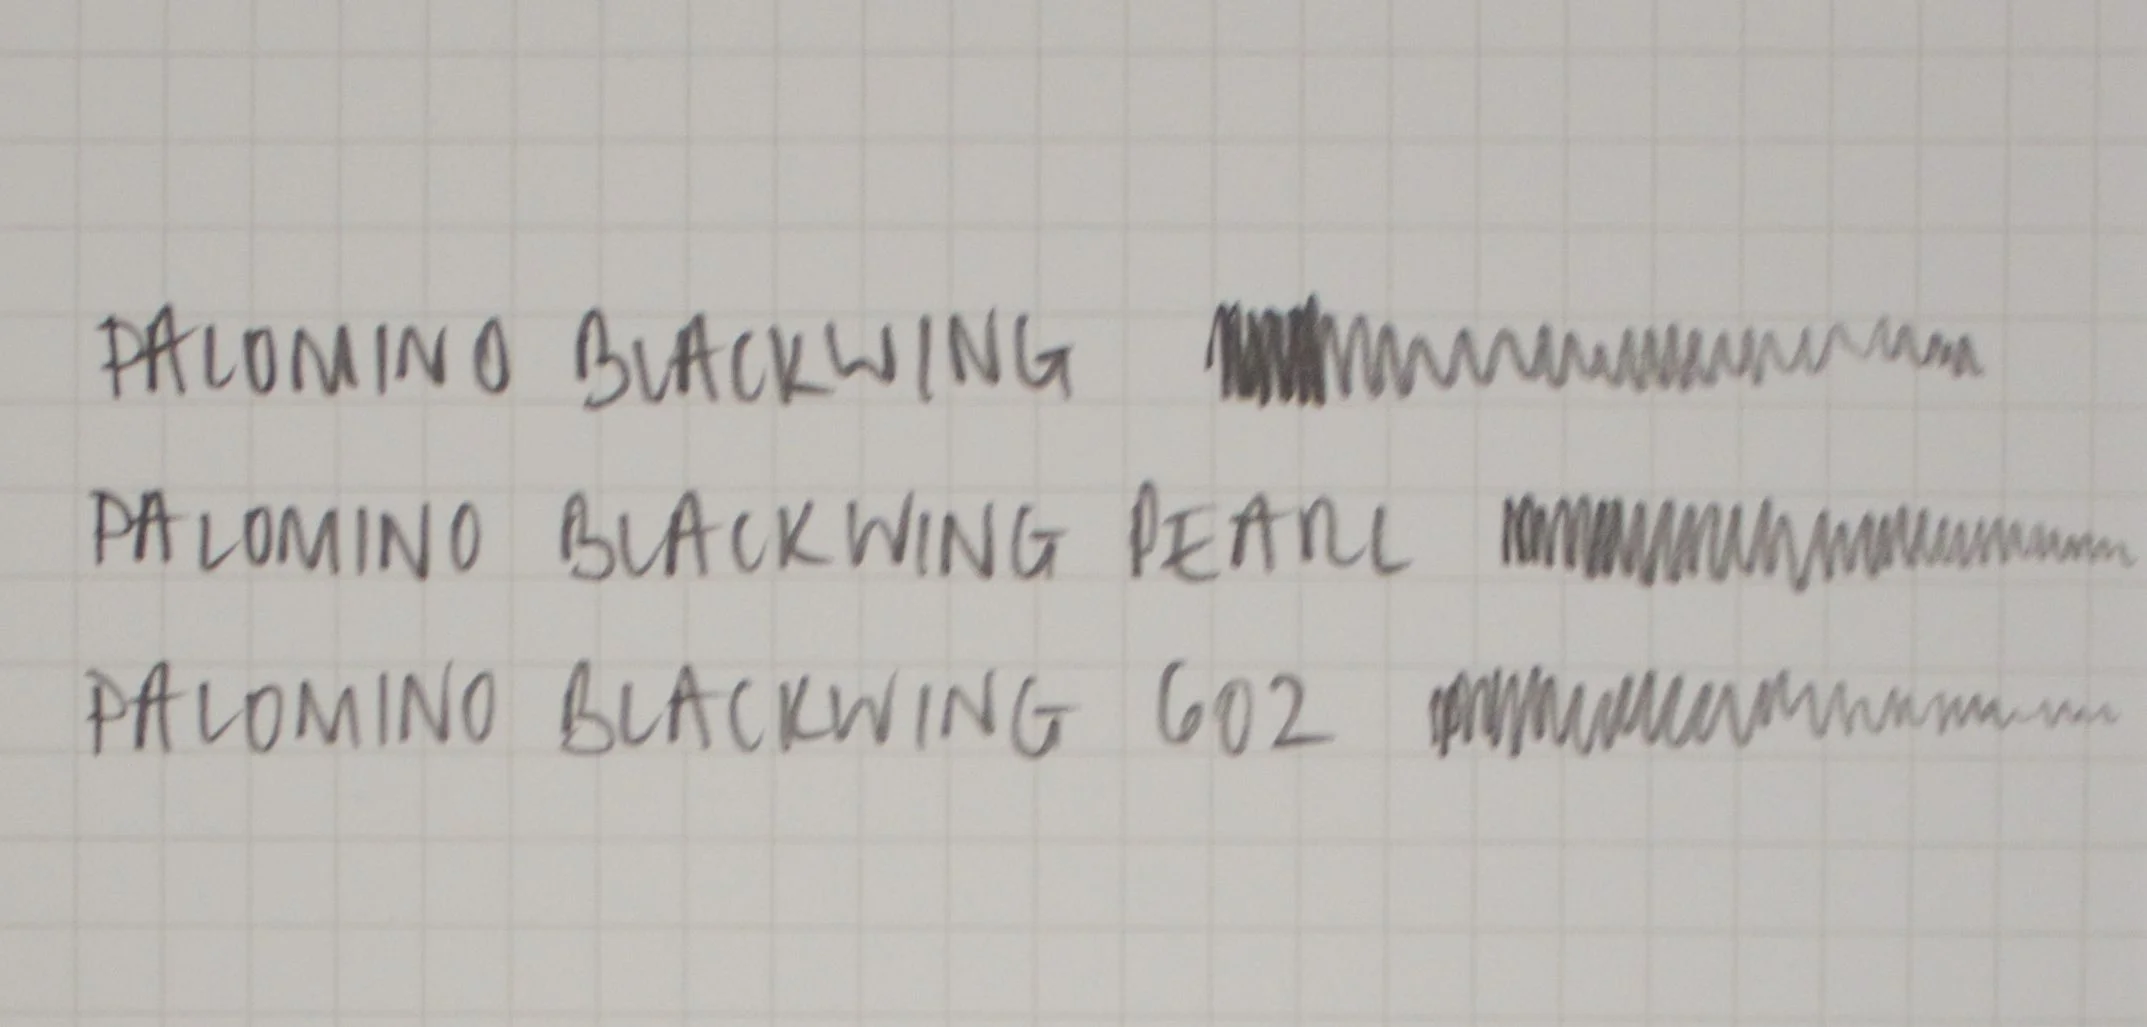 PALOMINO BLACKWING
PALOMINO BLACKWING PEARL
PALOMINO BLACKWING 602